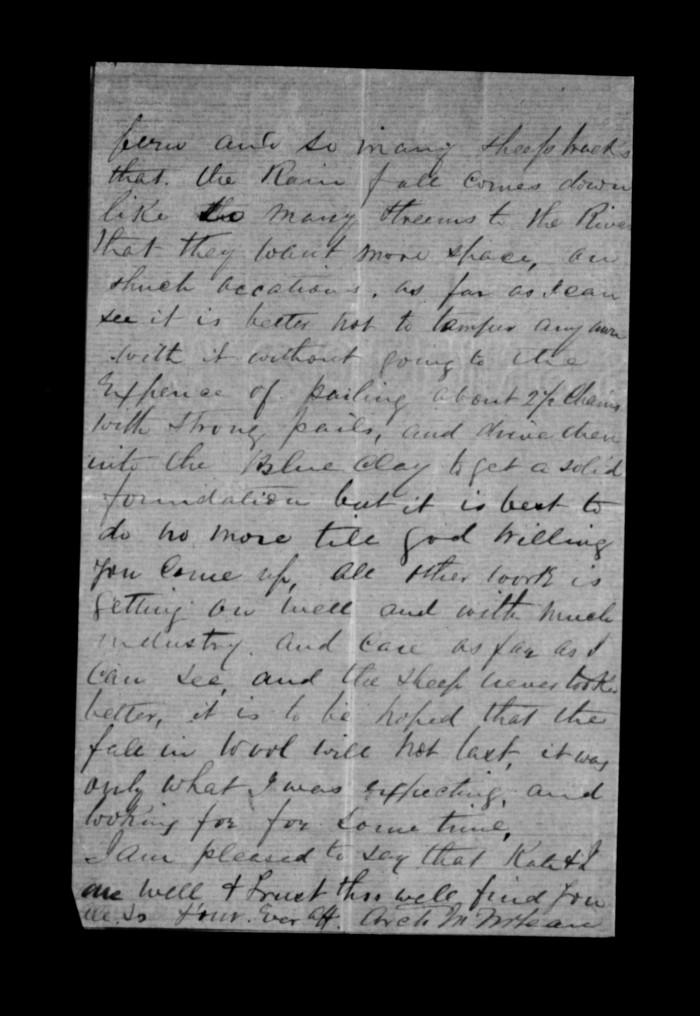 fern and so many sheep tracks
that. the Rain fall comes down
like so many streems to the River
that they want more space, on
shuch occations, as far as I can
see it is better not to tamper any more
with it without going to the
Expence of pailing about 2½ Chains
with strong pails, and drive them
into the Blue Clay to get a solid
foundation but it is best to
do no more till god willing
you Come up, all other work is
getting on well and with much
industry. and Care as far as I
Can see, and the sheep never looked
better, it is to be hoped that the
fall in wool will not last, it was
only what I was expecting, and
looking for for some time,
I am pleased to say that Kate & I
are well & trust this well find you
Your. Ever aff. Arch McLean